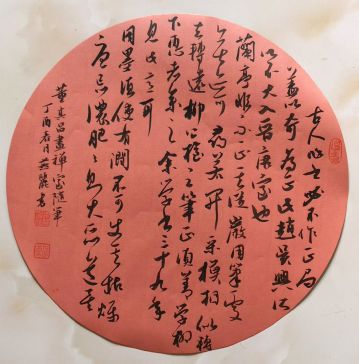 古人作书必不作正局
蓋以奇為正此趙吳興所
以不入晋唐室也
蘭亭非不正其縱宕用筆處
無迹可尋若形模相似轉
去轉遠柳公權云筆正須善學柳
下惠者參之余學書三十九年
見此意耳
用墨須使有潤不可使其枯燥
尤忌濃肥肥則大惡道矣
董其昌畫禪室隨筆
丁酉春月燕麗書